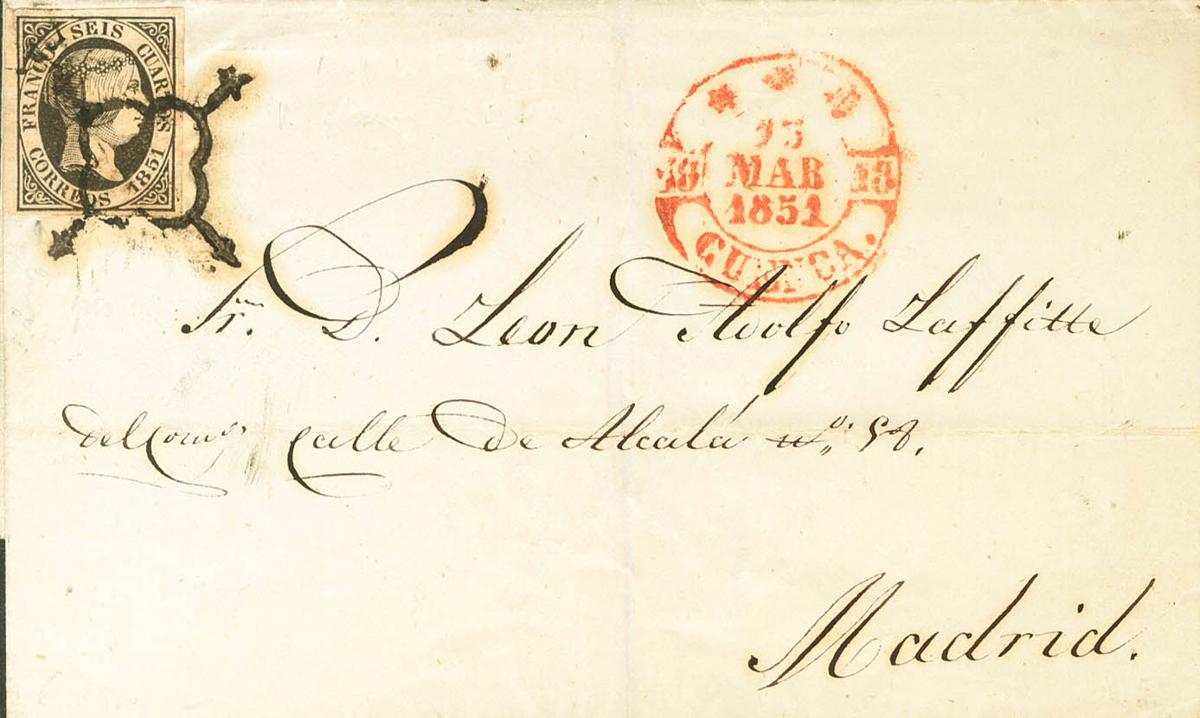 FRANCO SEIS CUARTOS
CORREOS 1851
18 18
MAR
1851
CUENCA.
Sr. D. Leon Adolfo Laffitte
del Com.º calle de Alcalá nº 58.
Madrid.